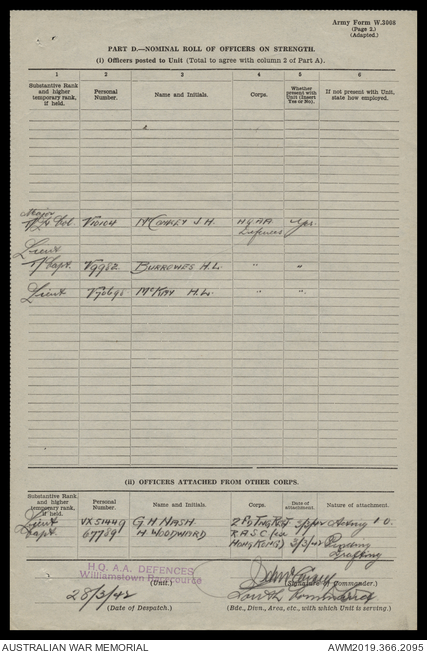 Army Form W.3008
(Page 2.)
(Adapted.)
PART D.—NOMINAL ROLL OF OFFICERS ON STRENGTH.
(i) Officers posted to Unit (Total to agree with column 2 of Part A).
1 2 3 4 5 6
Substantive Rank and higher temporary rank, if held. Personal Number. Name and Initials. Corps. Whether present with Unit (Insert Yes or No). If not present with Unit, state how employed.
Major
T/Lt Col. V10104 J.H. HQ AA Yes.
Defences
Lieut
T/Capt. V9982 BURROWES H.L. " "
Lieut McKAY H.L. " "
(ii) OFFICERS ATTACHED FROM OTHER CORPS.
Substantive Rank and higher temporary rank, if held. Personal Number. Name and Initials. Corps. Date of attachment. Nature of attachment.
Lieut VX51449 G H NASH 3/3/42
Capt. 67789 H WOODWARD RASC (ex
HONG KONG) 3/3/42 Pending
H.Q. A.A. DEFENCES
Williamstown Racecourse
(Unit.) (Signature of Commander.)
28/3/42
(Date of Despatch.) (Bde., Divn., Area, etc., with which Unit is serving.)
AUSTRALIAN WAR MEMORIAL AWM2019.366.2095